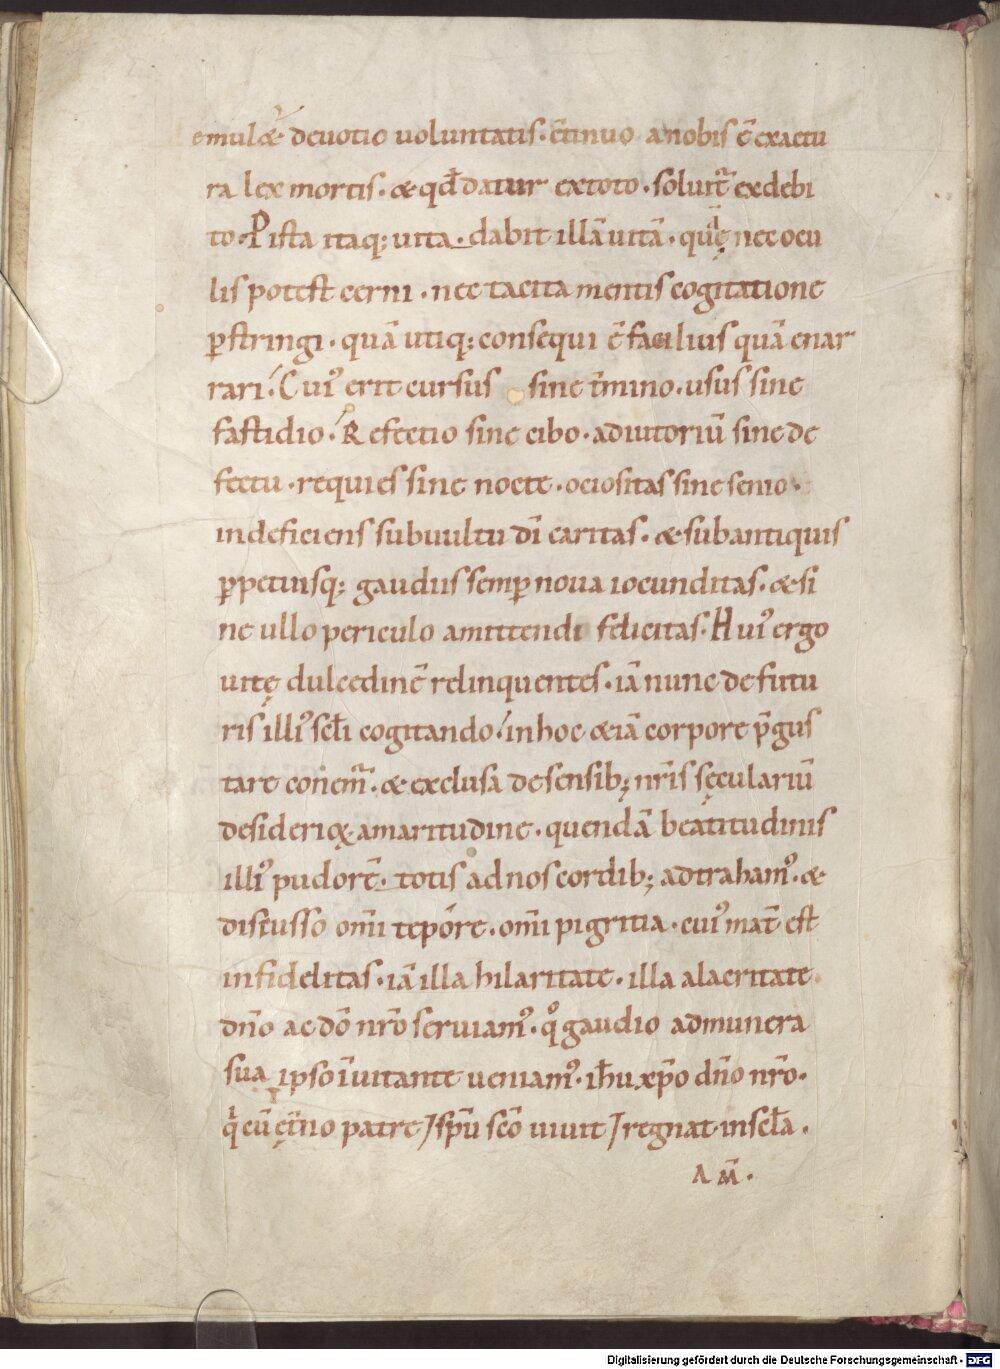 emulæ deuotio uoluntatis · c̄tinuo a nobis ē exactu
ra lex mortis · & qđ datur ex toto · soluit᷑ ex debi
to · Pista itaq; uita · dabit illā uitā · quę nec ocu
lis potest cerni · nec tacita mentis cogitatione
ꝑstringi · quā utiq; consequi ē facilius quā enar
rari · Cuiꝰ erit cursus sine t̄mino · usus sine
fastidio · Refectio sine cibo · adiutoriū sine de
fectu · requies sine nocte · ociositas sine senio ·
indeficiens sub uultu dī caritas · & sub antiquis
ꝑpetuisq; gaudiis semꝑ noua iocunditas · & si
ne ullo periculo amittendi felicitas · Huiꝰ ergo
uitę dulcedinē relinquentes · iā nunc de futu
ris illiꝰ sełi cogitando · in hoc &iā corpore p̄gus
tare conem᷑ · & exclusa de sensib; nr̄is sęculariū
desiderioꝝ amaritudine · quendā beatitudinis
illiꝰ pudorē · totis ad nos cordib; adtrahamꝰ · &
discusso om̄i tepore · om̄i pigritia · cuiꝰ mat̄ est
infidelitas · iā illa hilaritate · illa alacritate
dn̄o ac dō nr̄o seruiamꝰ · q̊ gaudio ad munera
sua ipso īuitante ueniamꝰ · ih̄u xp̄o dn̄o nr̄o ·
q̇ cū ęt̄no patre ⁊ sp̄u sc̄o uiuit ⁊ regnat in scła ·
AM̄ ·
Digitalisierung gefördert durch die Deutsche Forschungsgemeinschaft - DFG